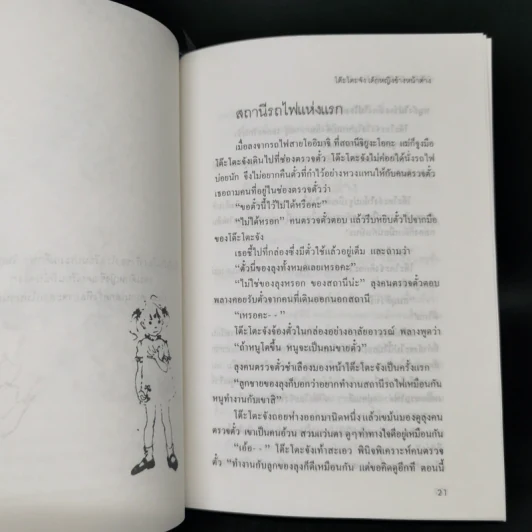 โต๊ะโตะจัง เด็กหญิงข้างหน้าต่าง
สถานีรถไฟแห่งแรก
เมื่อลงจากรถไฟสายโออิมาชิ ที่สถานีจิยูงะโอกะ แม่ก็จูงมือ
โต๊ะโตะจังเดินไปที่ช่องตรวจตั๋ว โต๊ะโตะจังไม่ค่อยได้นั่งรถไฟ
บ่อยนัก จึงไม่อยากคืนตั๋วที่กำไว้อย่างหวงแหนให้กับคนตรวจตั๋ว
เธอถามคนที่อยู่ในช่องตรวจตั๋วว่า
“ขอตั๋วนี้ไว้ไม่ได้หรือคะ”
“ไม่ได้หรอก” คนตรวจตั๋วตอบ แล้วรีบหยิบตั๋วไปจากมือ
ของโต๊ะโตะจัง
เธอชี้ไปที่กล่องซึ่งมีตั๋วใช้แล้วอยู่เต็ม และถามว่า
“ตั๋วนี่ของลุงทั้งหมดเลยเหรอคะ”
“ไม่ใช่ของลุงหรอก ของสถานีน่ะ” ลุงคนตรวจตั๋วตอบ
พลางคอยรับตั๋วจากคนที่เดินออกนอกสถานี
“เหรอคะ- - ”
โต๊ะโตะจังจ้องตั๋วในกล่องอย่างอาลัยอาวรณ์ พลางพูดว่า
“ถ้าหนูโตขึ้น หนูจะเป็นคนขายตั๋ว”
ลุงคนตรวจตั๋วชำเลืองมองหน้าโต๊ะโตะจังเป็นครั้งแรก
“ลูกชายของลุงก็บอกว่าอยากทำงานสถานีรถไฟเหมือนกัน
หนูทำงานกับเขาสิ”
โต๊ะโตะจังถอยห่างออกมานิดหนึ่ง แล้วเขม้นมองดูลุงคน
ตรวจตั๋ว เขาเป็นคนอ้วน สวมแว่นตา ดูๆ ท่าทางใจดีอยู่เหมือนกัน
“เอ้อ- - ” โต๊ะโตะจังเท้าสะเอว พินิจพิเคราะห์คนตรวจ
ตั๋ว “ทำงานกับลูกของลุงก็ดีเหมือนกัน แต่ขอคิดดูอีกที ตอนนี้
21